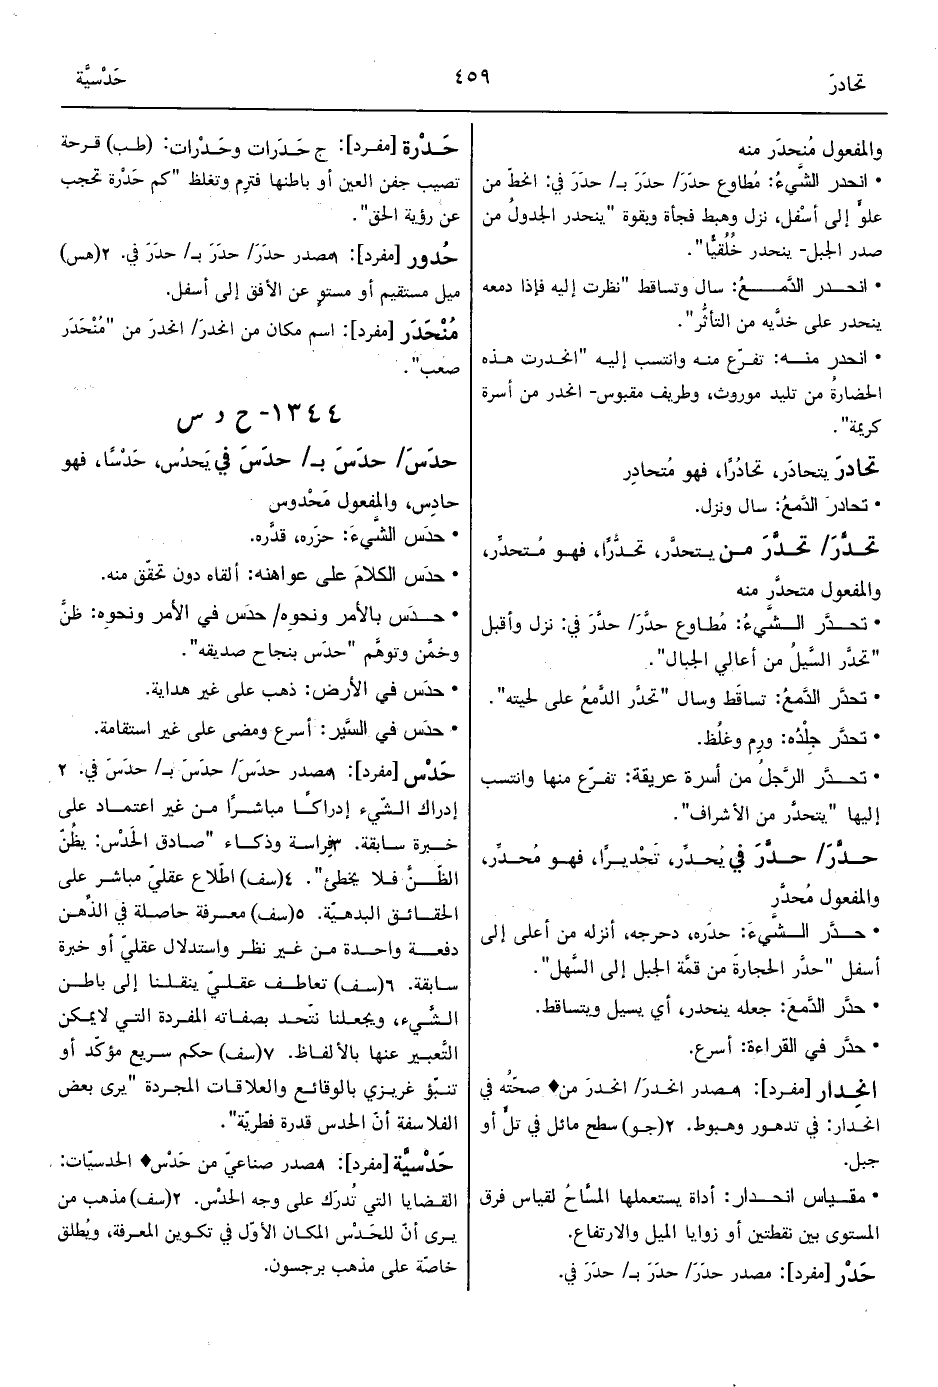 تحادرَ
٤٥٩
حَدْسيَّة
والمفعول مُنحدَر منه
• انحدر الشَّيءُ: مُطاوع حدَرَ/ حدَرَ بـ/ حدَرَ في: انحطّ من
علوٍّ إلى أسْفل، نزل وهبط فجأة وبقوة "ينحدر الجدولُ من
صدر الجبل- ينحدر خُلُقيًّا".
• انحـدر الدَّمـــعُ: سال وتساقط "نظرت إليه فإذا دمعه
ينحدر على خدَّيه من التأثُّر".
• انحدر منـه: تفرّع منه وانتسب إليه "انحدرت هـذه
الحضارةُ من تليد موروث، وطريف مقبوس- انحدر من أسرة
كريمة".
تحادرَ يتحادَر، تحادُرًا، فهو مُتحادِر
• تحادرَ الدَّمعُ: سال ونزل.
تحدَّرَ/ تحدَّرَ مـن يـتحدَّر، تحـدُّرًا، فهـو مُـتحدِّر،
والمفعول متحدَّر منه
• تحـدَّر الـشَّيءُ: مُطـاوع حدَّرَ/ حدَّرَ في: نزل وأقبل
"تحدَّر السَّيلُ من أعالي الجبال".
• تحدَّر الدَّمعُ: تساقَط وسال "تحدَّر الدَّمعُ على لحيته".
• تحدَّر جِلْدُه: ورِم وغلُظ.
• تحـدَّر الرَّجلُ من أسرة عريقة: تفـرّع منها وانتسب
إليها "يتحدَّر من الأشراف".
حـدَّرَ/ حـدَّرَ في يُحـدِّر، تَحْديـرًا، فهـو مُحـدِّر،
والمفعول مُحدَّر
• حـدَّر الـشَّيءَ: حدَره، دحرجه، أنزله من أعلى إلى
أسفل "حدَّر الحجارةَ من قمَّة الجبل إلى السَّهل".
• حدَّر الدَّمعَ: جعله ينحدر، أي يسيل ويتساقط.
• حدَّر في القراءة: أسرع.
انحِدار [مفرد]: ١مصدر انحدرَ/ انحدرَ من♦ صحّتُه في
انحدار: في تدهور وهبوط. ٢(جو) سطح مائل في تلٍّ أو
جبل.
• مقـياس انحـدار: أداة يستعملها المسَّاحُ لقياس فرق
المستوى بين نقطتين أو زوايا الميل والارتفاع.
حَدْر [مفرد]: مصدر حدَرَ/ حدَرَ بـ/ حدَرَ في.
حَدْرة [مفرد]: ج حَدَرات وحَدْرات: (طب) قرحة
تصيب جفن العين أو باطنها فترِم وتغلظ "كم حَدْرة تحجب
عن رؤية الحق".
حُدور [مفرد]: ١مصدر حدَرَ/ حدَرَ بـ/ حدَرَ في. ٢(هس)
ميل مستقيم أو مستوٍ عن الأفق إلى أسفل.
مُنْحَدَر [مفرد]: اسم مكان من انحدرَ/ انحدرَ من "مُنْحَدَر
صعب".
١٣٤٤- ح د س
حدَسَ/ حدَسَ بـ/ حدَسَ في يَحدُس، حَدْسًا، فهو
حادِس، والمفعول مَحْدوس
• حدَس الشَّيءَ: حزَره، قدَّره.
• حدَس الكلامَ على عواهنه: ألقاه دون تحقّق منه.
• حـدَس بالأمر ونحوه/ حدَس في الأمر ونحوه: ظنَّ
وخمَّن وتوهَّم "حدَس بنجاح صديقه".
• حدَس في الأرض: ذهب على غير هداية.
• حدَس في السَّير: أسرع ومضى على غير استقامة.
حَدْس [مفرد]: ١مصدر حدَسَ/ حدَسَ بـ/ حدَسَ في. ٢
إدراك الـشّيء إدراكًـا مباشـرًا مـن غير اعتمـاد على
خبـرة سـابقة. ٣فِراسة وذكاء "صادق الحَدْس: يظُنّ
الظّـنَّ فـلا يخطئ". ٤(سف) اطّلاع عقليّ مباشر على
الحقـائـق البدهيَّة. ٥(سف) معرفة حاصلة في الذِّهن
دفعـة واحـدة مـن غيـر نظر واستدلال عقليّ أو خبرة
سابقة. ٦(سف) تعاطف عقـليّ ينقلـنا إلى باطـن
الـشَّيء، ويجعلنا نتّحد بصفاته المفردة التي لا يمكن
التَّعبير عنها بالألفاظ. ٧(سف) حكم سريع مؤكّد أو
تنبّؤ غريزي بالوقائع والعلاقات المجردة "يرى بعض
الفلاسفة أنّ الحدس قدرة فطريّة".
حَدْسيَّة [مفرد]: ١مصدر صناعيّ من حَدْس♦ الحدسيّات:
القضايا التي تُدرَك على وجه الحَدْس. ٢(سف) مذهب من
يـرى أنّ للحَدْس المكان الأوّل في تكوين المعرفة، ويُطلق
خاصّة على مذهب برجسون.